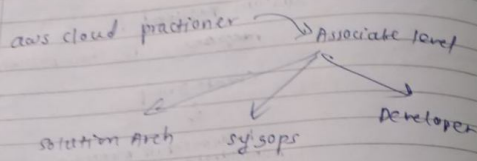 aws cloud practioner
Associate level
Solution Arch
sysops
Developer